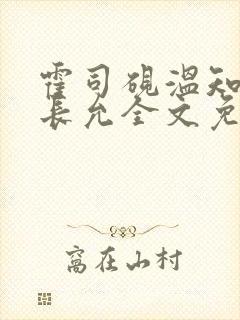 霍司砚温知
长允全文免
窝在山村